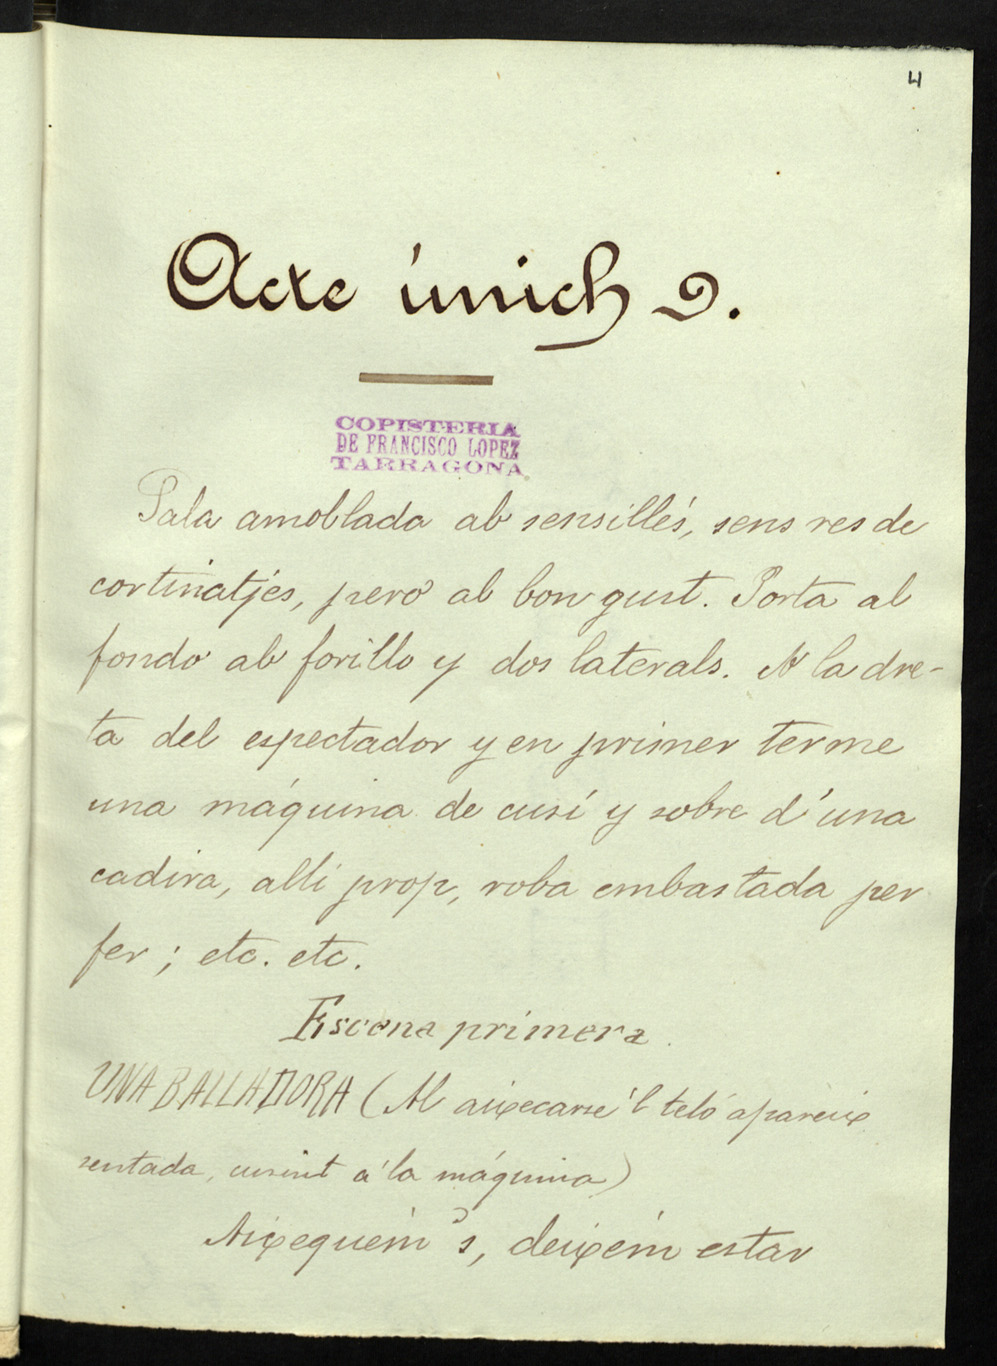 4
Acte únich 2.
COPISTERIA
DE FRANCISCO LOPEZ
TARRAGONA
Sala amoblada ab sensillés, sens res de
cortinatjes, peró ab bon gust. Porta al
fondo ab forillo y dos laterals. A la dre-
ta del espectador y en primer terme
una máquina de cusí y sobre d'una
cadira, allí prop, roba embastada per
fer; etc. etc.
Escena primera.
UNA BALLADORA (Al aixecarse 'l teló apareix
sentada, cusint á la máquina)
Aixequém's, deixém estar